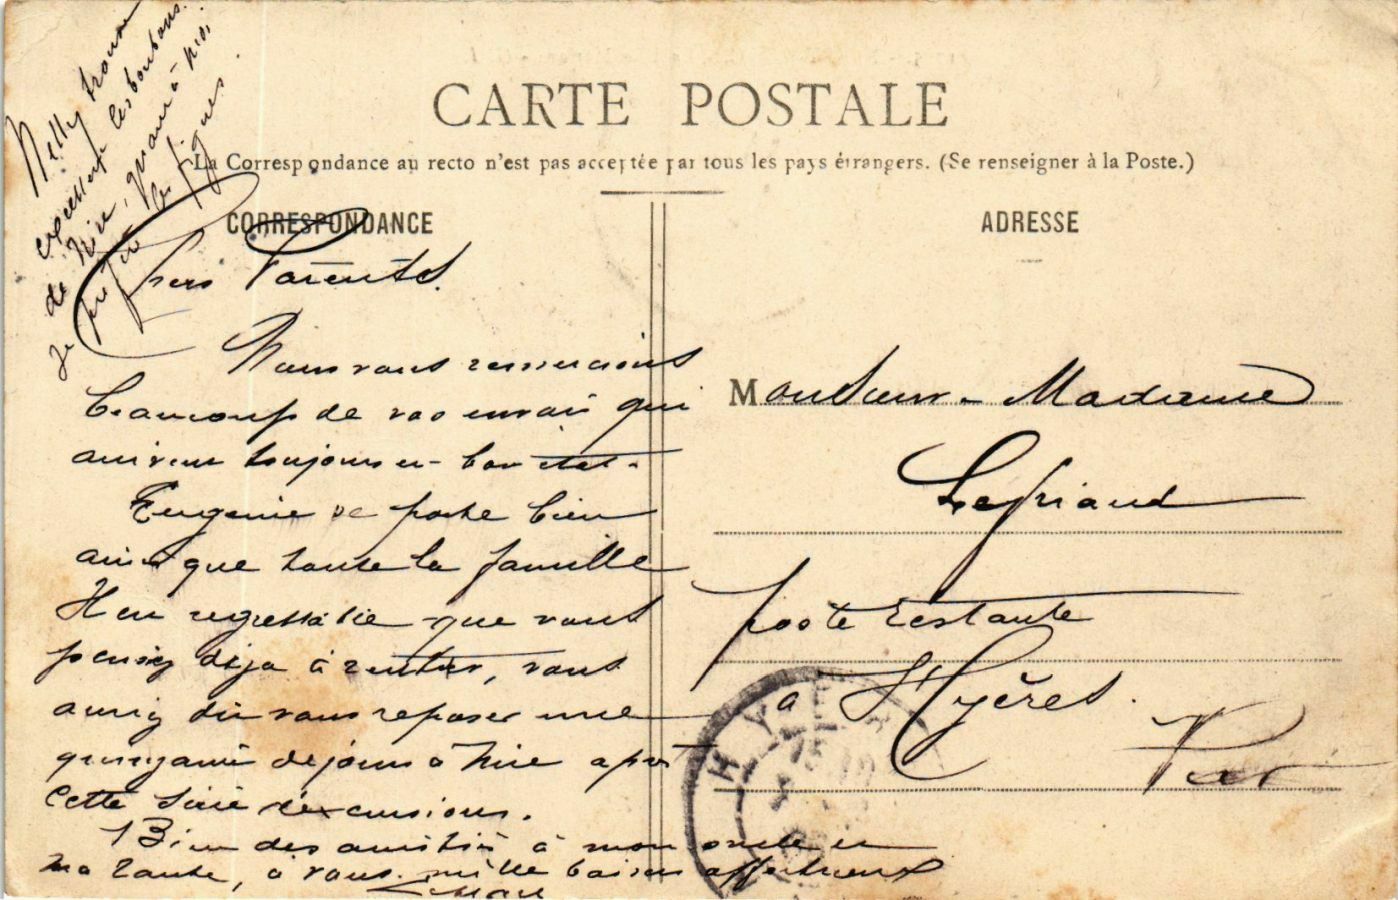 CARTE POSTALE
La Correspondance au recto n'est pas acceptée par tous les pays étrangers. (Se renseigner à la Poste.)
CORRESPONDANCE
ADRESSE
Nelly trouve
excellents les bonbons
de Nice, quant à moi
je préfère les figues.
Chers Parents.
Nous vous remercions
beaucoup de vos envois qui
arrivent toujours en bon état.
Eugénie se porte bien
ainsi que toute la famille
Il en regrettable que vous
pensiez déjà à rentrer, vous
auriez dû vous reposer une
quinzaine de jours à Nice après
cette série d'excursions.
Bien des amitiés à mon oncle et
ma tante, à vous mille baisers affectueux
Monsieur - Madame
Lefriand
poste restante
à Hyères.
Var
HYÈRES